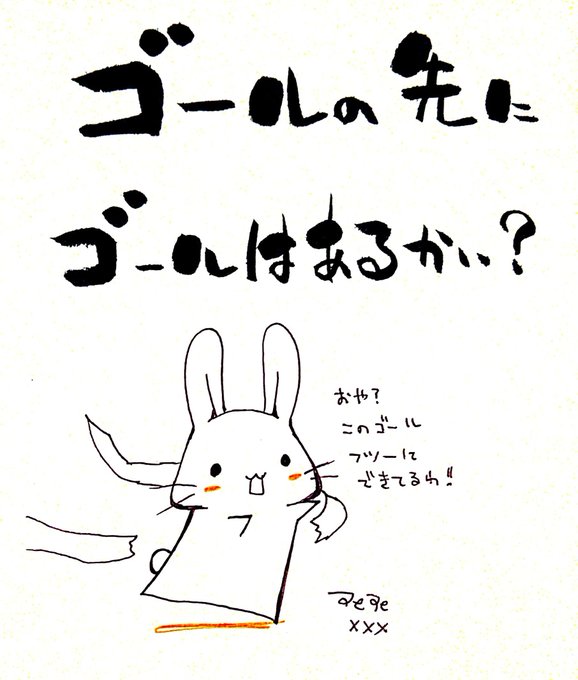 ゴールの先に
ゴールはあるかい?
おや?
このゴール
フツーに
できてるわ!!
xxx